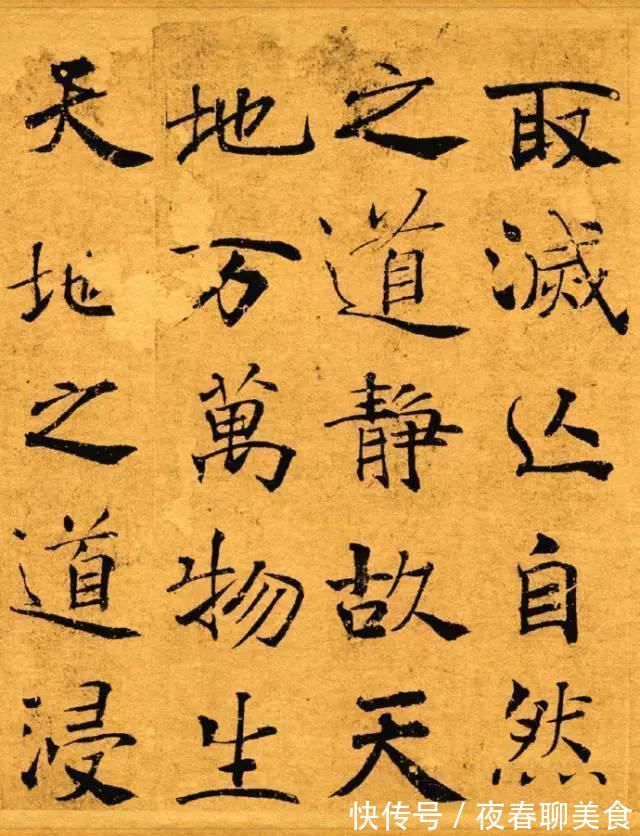 取滅亾自然
之道静故天
地万萬物生
天地之道浸
快传号 / 夜春聊美食